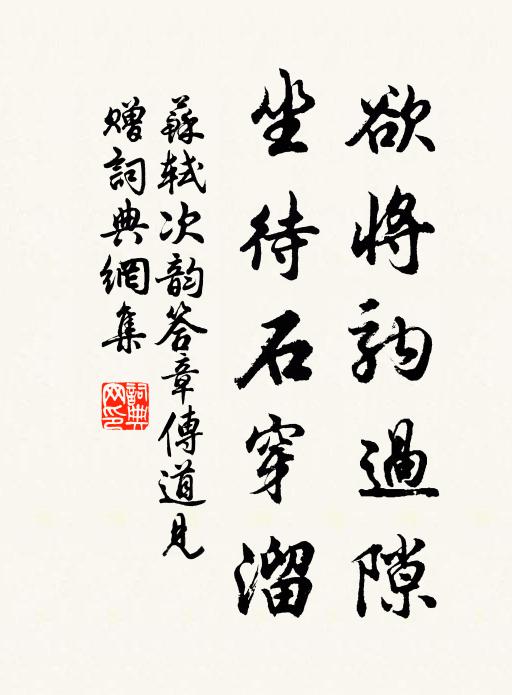 欲將駒過隙
坐待石穿溜
蘇軾次韵答章傳道見
贈詞典網集
詞典
网印